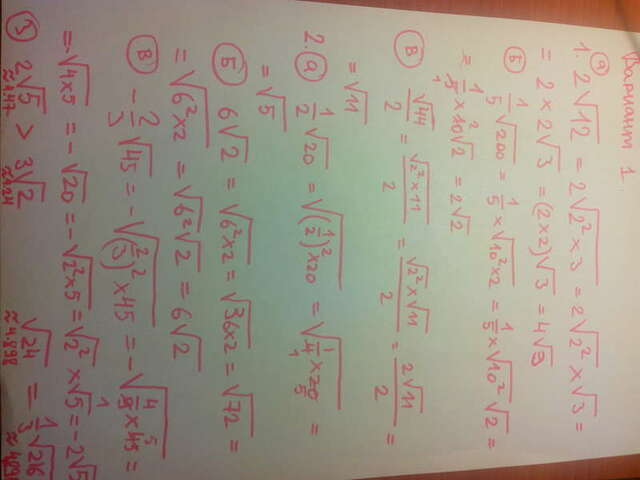 Вариант 1
1. а) 2√12 = 2√2² × 3 = 2√2² × √3 =
= 2 × 2√3 = (2×2)√3 = 4√3
Б) 1/5 √200 = 1/5 × √10² × 2 = 1/5 × √10² √2 =
= 1/5 × 10√2 = 2√2
В) √44/2 = √2² × 11/2 = √2² × √11/2 = 2√11/2 =
= √11
2. а) 1/2 √20 = √(1/2)² × 20 = √1/4 × 20 =
= √5
Б) 6√2 = √6² × 2 = √36 × 2 = √72 =
= √6² × 2 = √6² √2 = 6√2
В) - 2/3 √45 = -√(2/3)² × 45 = -√4/9 × 45 =
= -√4×5 = -√20 = -√2² × 5 = √2² × √5 = -2√5
3) 2√5 > 3√2 √24 = 1/3 √216